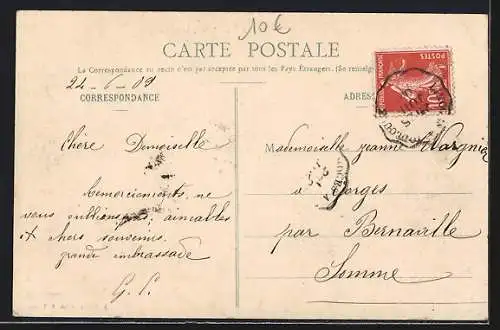 10€
CARTE POSTALE
La Correspondance au recto n'est pas acceptée par tous les Pays Étrangers. (Se renseigner
24-6-09
CORRESPONDANCE
ADRES
Chère Demoiselle
Remerciements, ne
vous oublions pas, aimables
et chers souvenirs.
grande embrassade
G. C.
Mademoiselle Jeanne Wargnier
à Gorges
par Bernaville
Somme
10